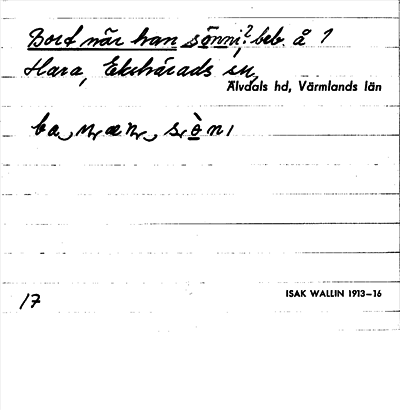 Bort när han sönni, beb. å 1
Hara, Ekshärads sn,
Älvdals hd, Värmlands län
17
ISAK WALLIN 1913–16